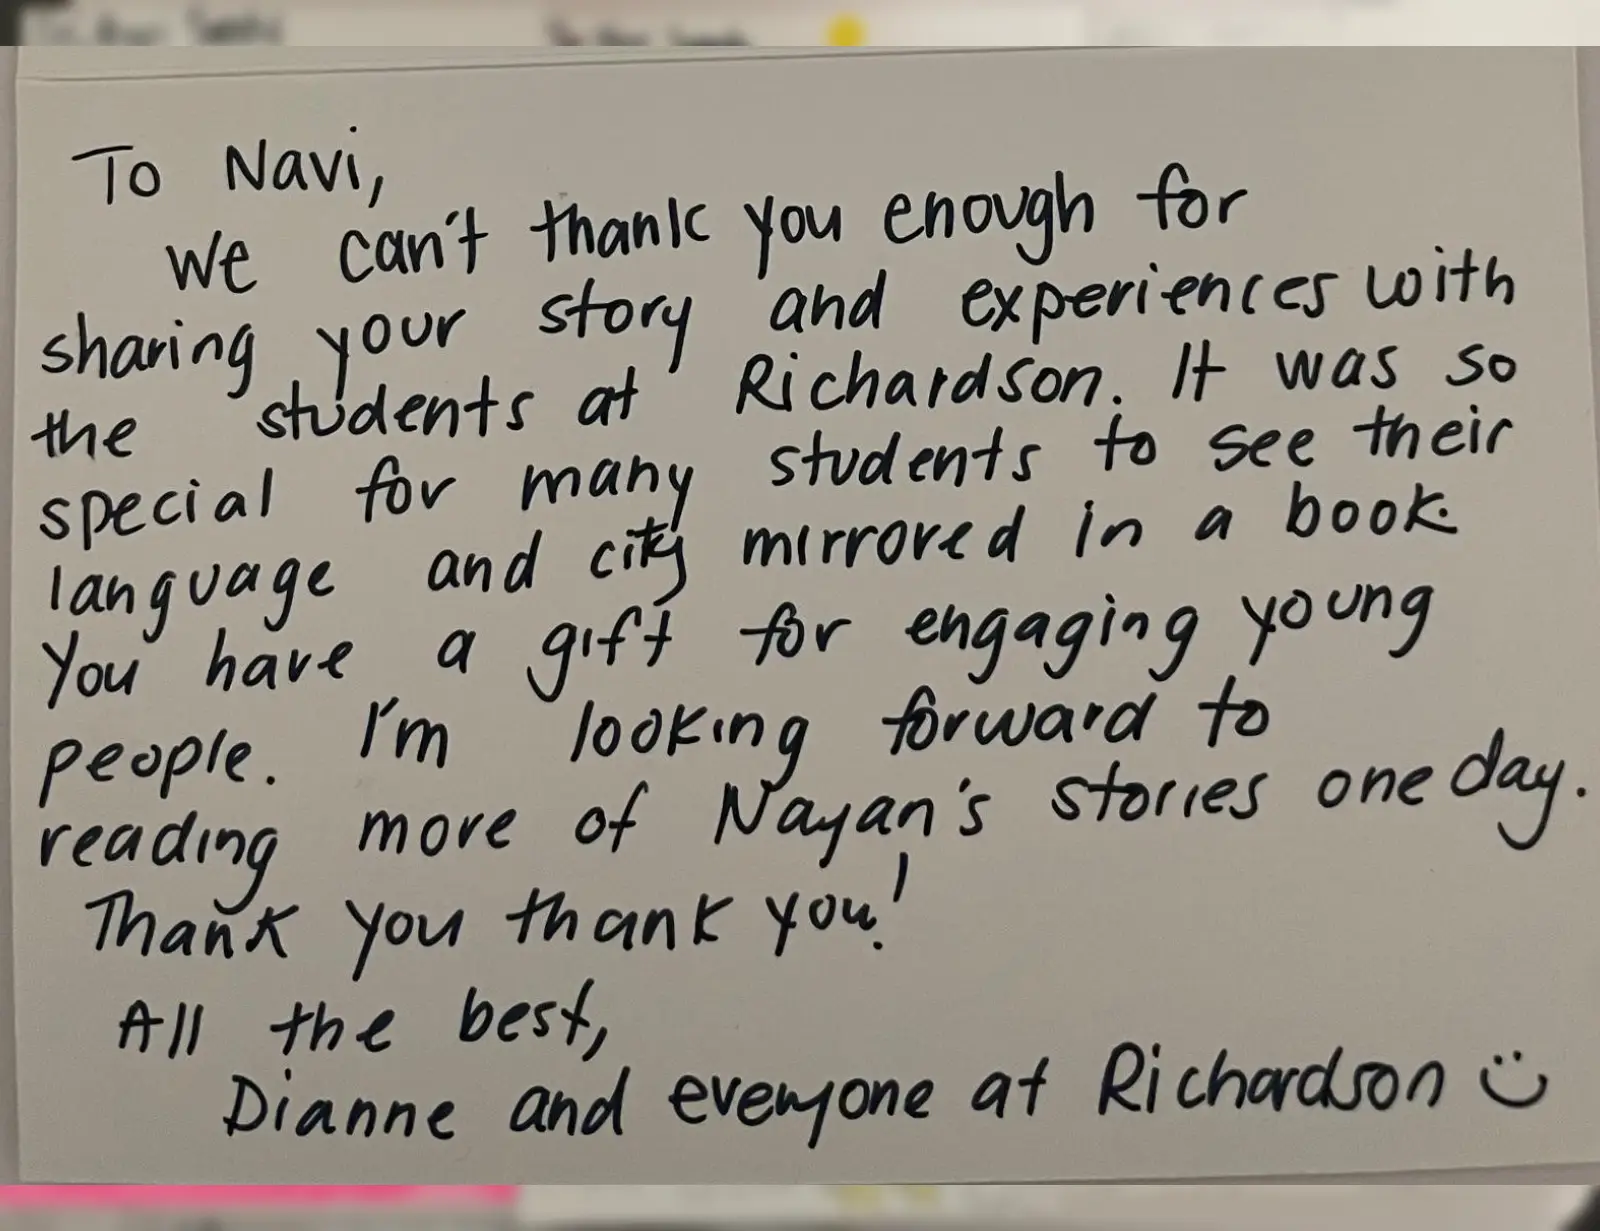 To Navi,
We can't thank you enough for
sharing your story and experiences with
the students at Richardson. It was so
special for many students to see their
language and city mirrored in a book.
You have a gift for engaging young
people. I'm looking forward to
reading more of Nayan's stories one day.
Thank you thank you!
All the best,
Dianne and everyone at Richardson :)